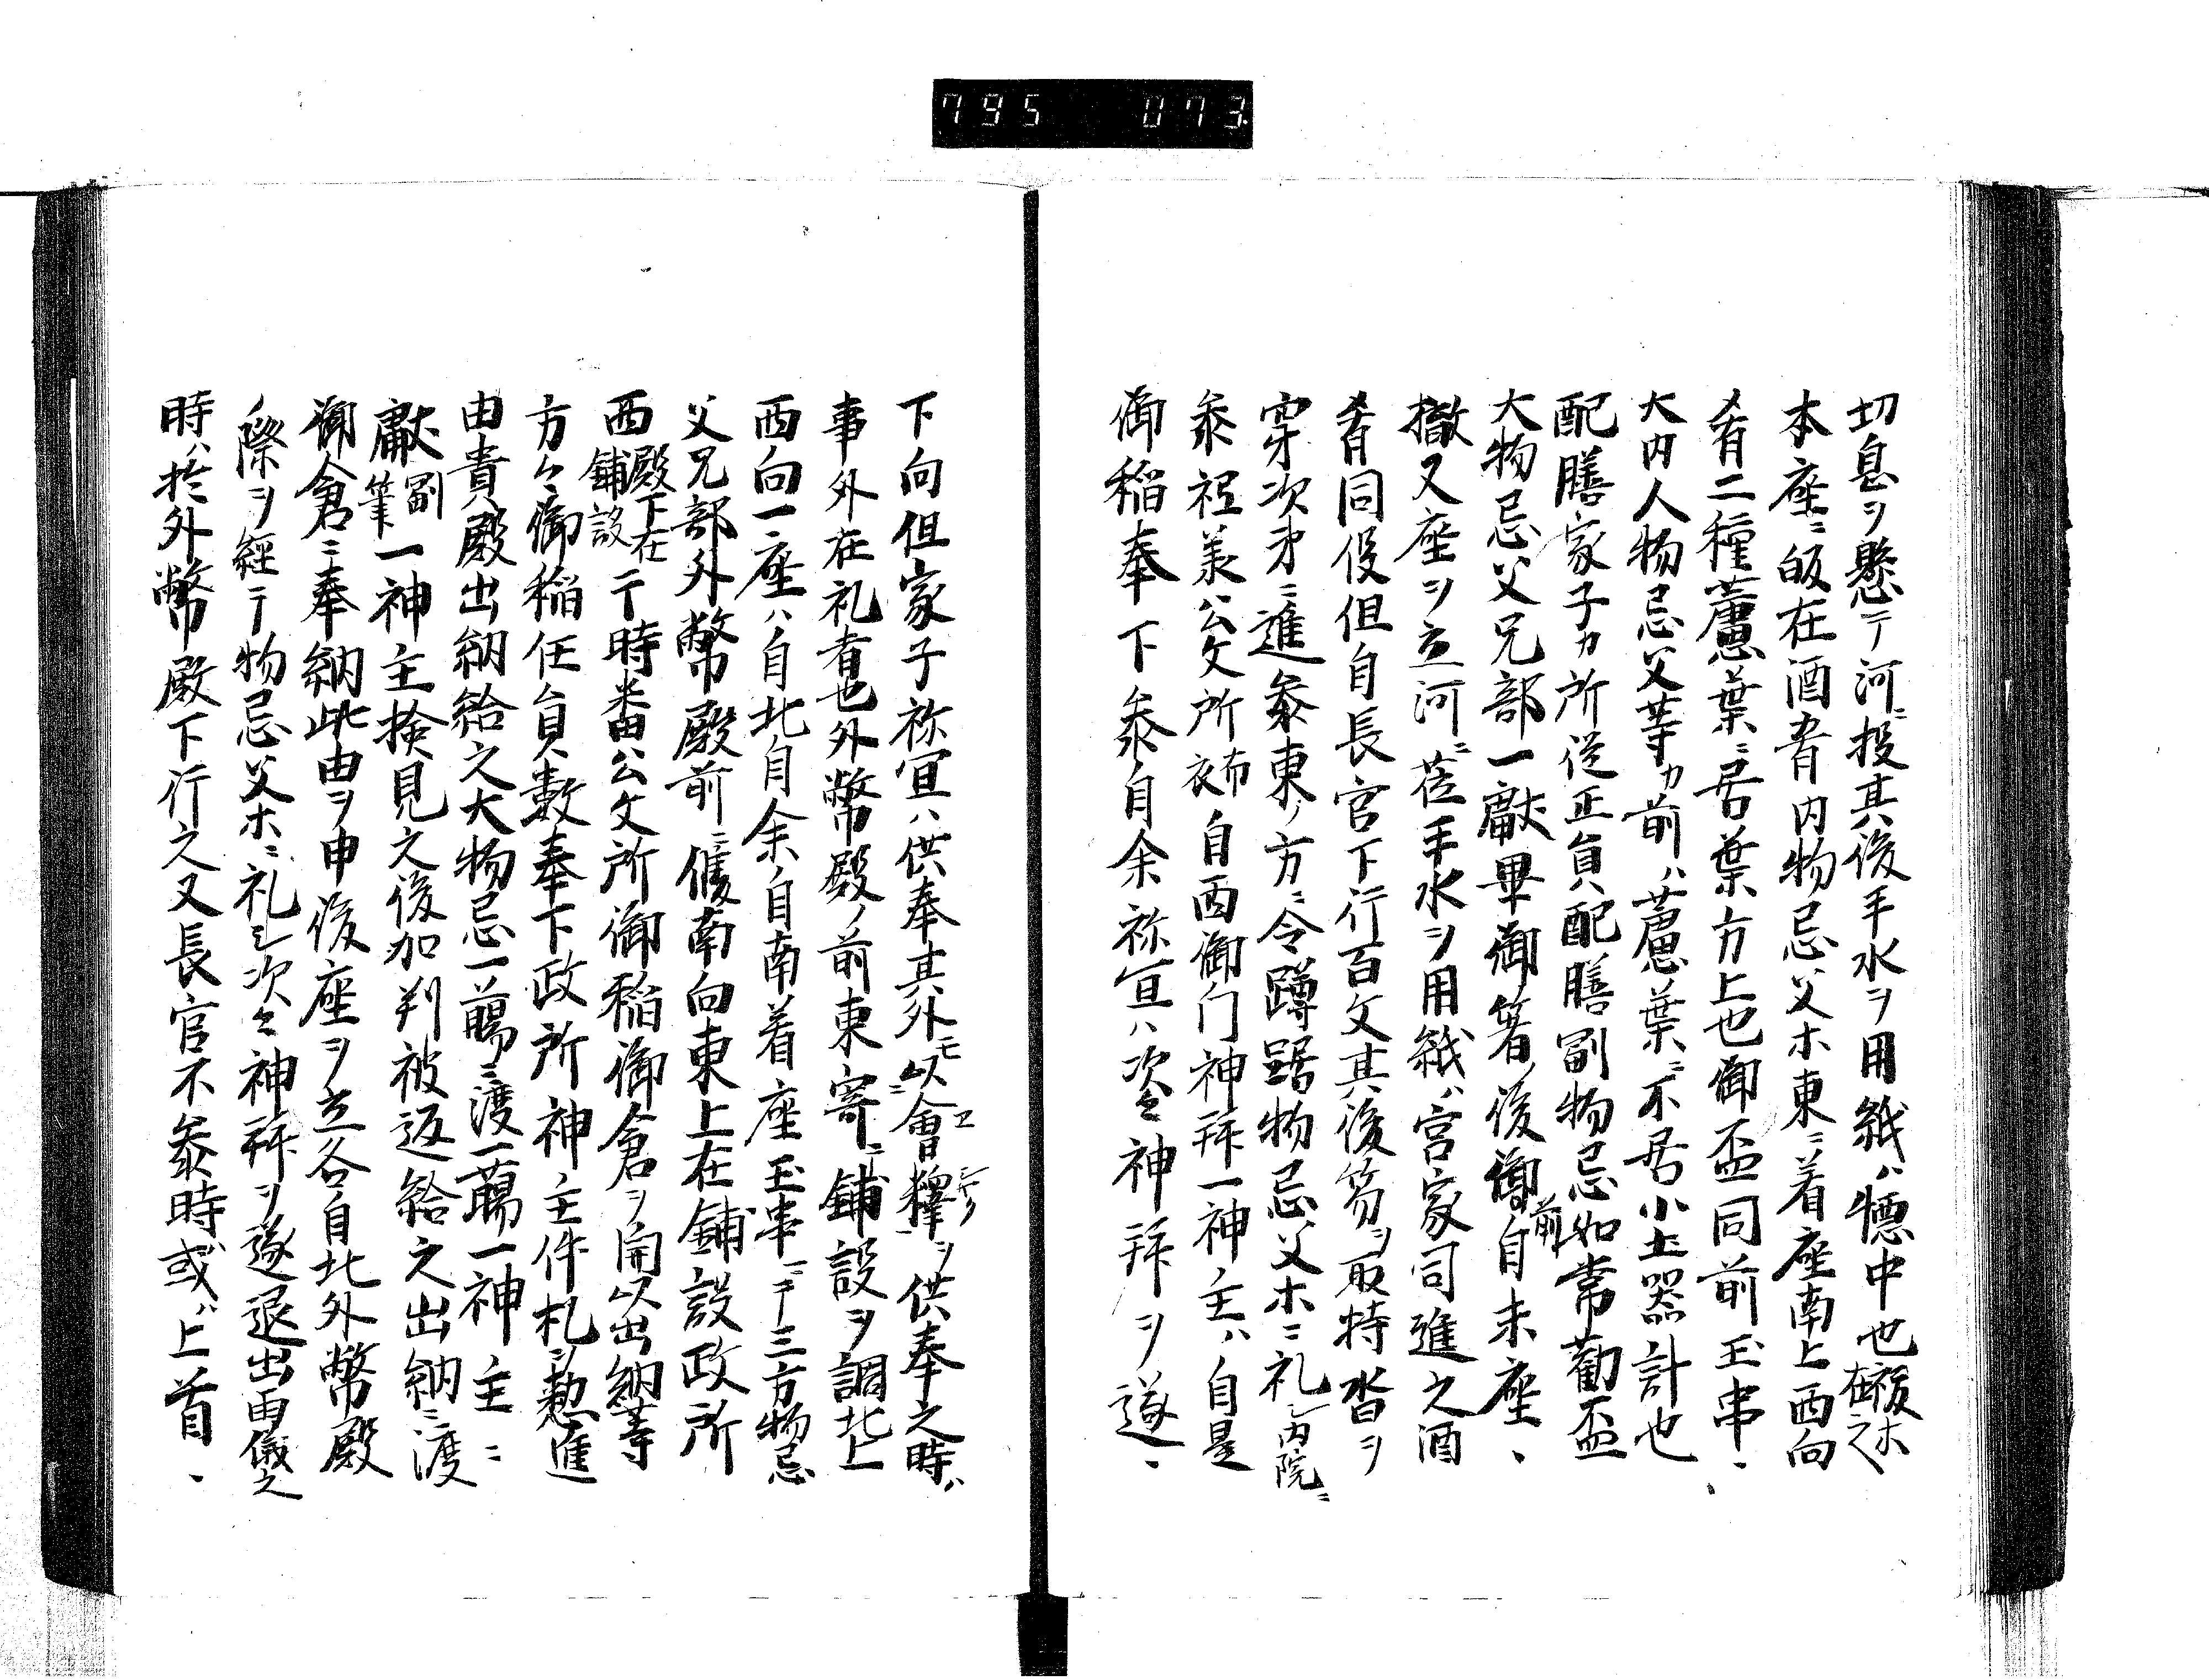 795 073
切息ヲ懸テ河ニ投其後手水ヲ用紙ハ懐中也祓木在之
本座ニ皈在酒肴内物忌父ホ東ニ着座南上西向
肴二種蘆葉ニ居葉方上也御盃同前玉串、
大内人物忌父等カ前ハ蘆葉ニ不居小土器計也
配膳家子カ所従正員配膳副物忌如常勧盃
大物忌父兄部一献畢御箸ノ後御前自末座、
撤又座ヲ立河ニ莅手水ヲ用紙ハ宮家司進之酒
肴同役但自長官下行百文其後笏ヲ取持沓ヲ
穿次才ニ進参東ノ方ニ令蹲踞物忌父ホニ礼シ内院ニ
参祗美公文所衣布自西御门神拜一神主ハ自是
御稲奉下参自余祢宜ハ次々神拜ヲ遂、
下向但家子祢宜ハ供奉其外モ以會釋ヲ供奉之時ハ
事外在礼者也外幣殿ノ前東寄ニ鋪設ヲ調北上
西向一座ハ自北自余ハ自南着座玉串ニテ三方物忌
父兄部外幣殿前ニ傴南向東上在鋪設政所
西殿下在鋪設ニテ時番公文所御稲御倉ヲ開以出納等
方々御稲任員数奉下政所神主件札ヲ懃進
由貴殿出納給之大物忌一臈ニ渡一臈一神主ニ
獻副筆一神主検見之後加判被返給之出納ニ渡
御倉ニ奉納此由ヲ申後座ヲ立各自北外幣殿
ノ際ヲ經テ物忌父ホニ礼シ次々神拜ヲ遂退出由儀之
時ハ於外幣殿下行之又長官不参時或ハ上首、